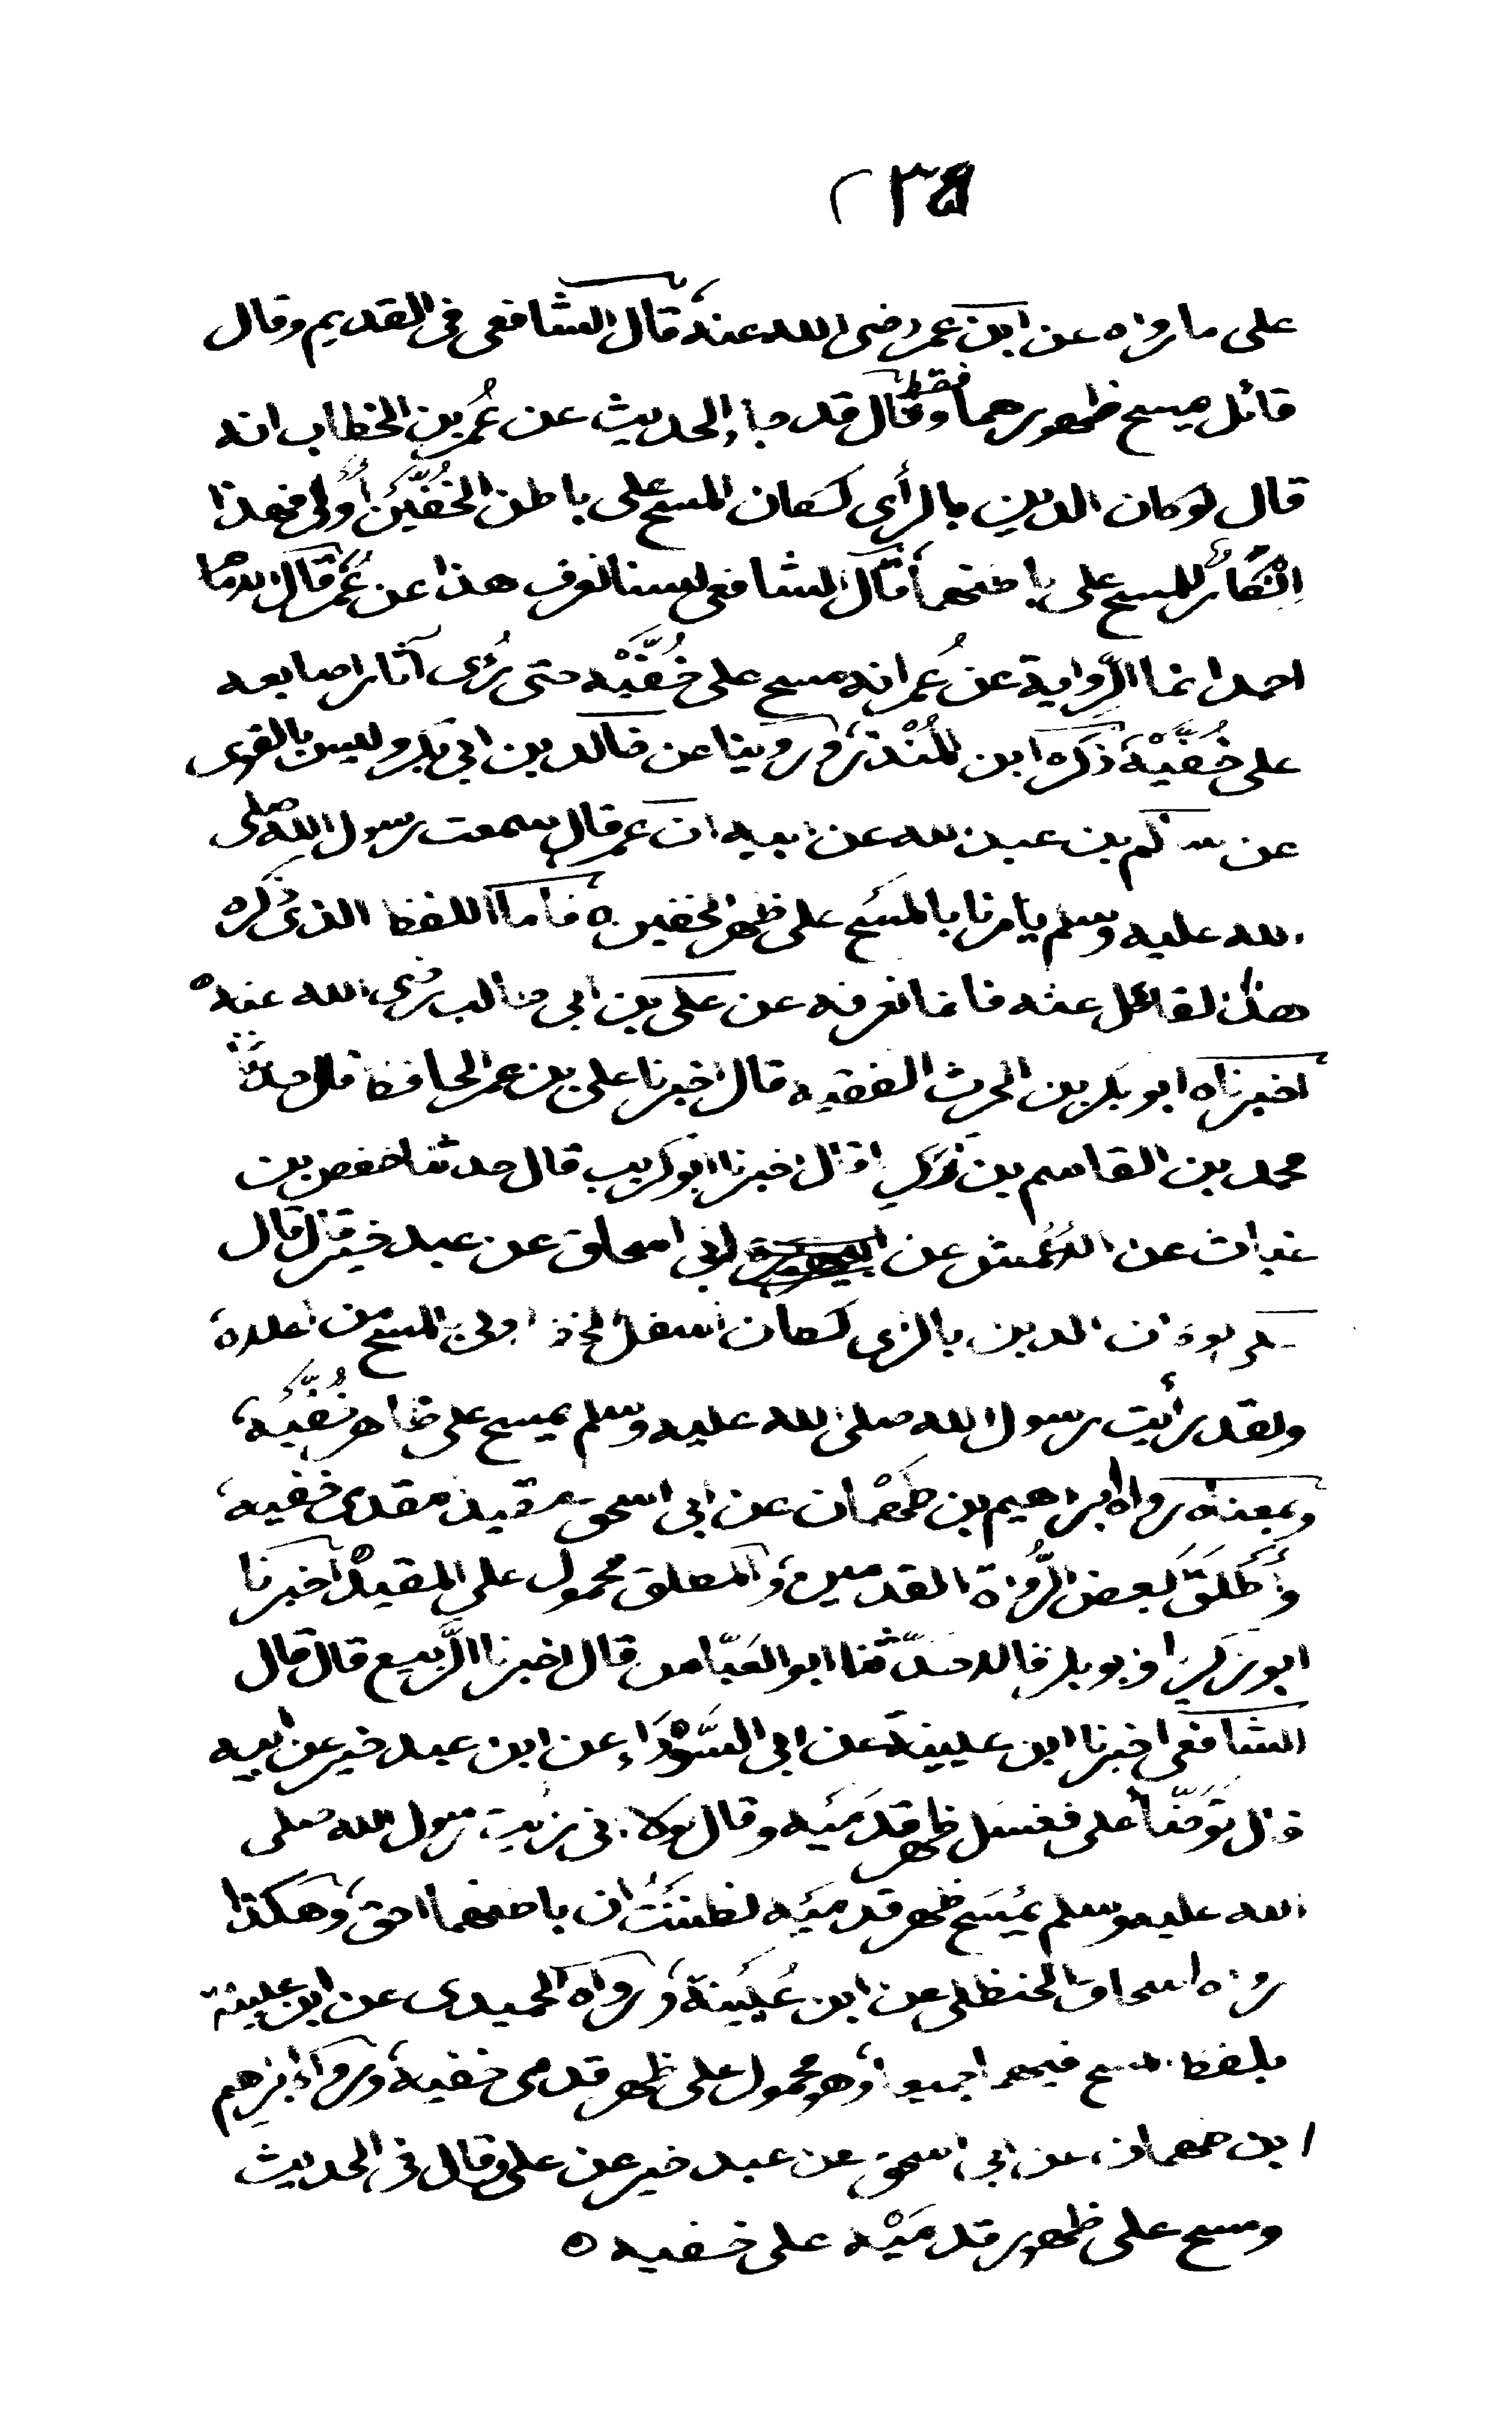 ٢٣٥
على ما رواه عن ابن عمر رضى الله عنه قال الشافعى فى القديم وقال
قائل يمسح ظهورهما فقط وقال قد جاء الحديث عن عُمر بن الخطاب انه
قال لو كان الدين بالرأى لكان المسح على باطن الخُفَّين أَولى فهذا
اِنْكارٌ للمسح على باطنهما قال الشافعى لسنا نعرف هذا عن عُمر قال الامام
احمد انما الرِّواية عن عُمر انه مسح على خُفَّيْه حتى رُؤى آثار اصابعه
على خُفَّيْه ذكره ابن المُنْذر وروينا عن خالد بن ابى بكر وليس بالقوى
عن سالم بن عبد الله عن ابيه ان عمر قال سمعت رسول الله صلى
الله عليه وسلم يامرنا بالمسح على ظهر الخفين ه فاما اللفظ الذى ذكره
هذا القائل عنه فانما نعرفه عن على بن ابى طالب رضى الله عنه
اخبرناه ابو بكر بن الحرث الفقيه قال اخبرنا على بن عمر الحافظ قال حدثنا
محمد بن القاسم بن زكريا قال اخبرنا ابو كريب قال حدثنا حفص بن
غياث عن الاعمش عن ابى اسحاق عن عبد خير قال قال
على لو كان الدين بالراى لكان اسفل الخف اولى بالمسح من اعلاه
ولقد رأيت رسول الله صلى الله عليه وسلم يمسح على ظاهر خُفَّيْه
وبمعناه رواه ابراهيم بن طَهْمان عن ابى اسحق مقيد بقدمى خفيه
وأَطْلَقَ بعض الرُّواة القدمين والمطلق محمول على المقيد اخبرنا
ابو زكريا وابو بكر قالا حدّثنا ابو العَبّاس قال اخبرنا الرَّبيع قال قال
الشافعى اخبرنا ابن عيينة عن ابى السَّوْدَاء عن ابن عبد خير عن ابيه
قال تَوَضَّأ على فغسَل ظهر قَدَمَيْه وقال لولا انى رايت رسول الله صلى
الله عليه وسلم يمسَح ظهر قدمَيْه لظننتُ ان باطنهما احق وهكذا
رواه اسحاق الحنظلى عن ابن عُيَيْنة ورواه الحميدى عن ابن عيينة
بلفظ المسح فيهما جميعا وهو محمول على ظهر قدمى خفيه ورواه ابرهيم
ابن طهمان عن ابى اسحق عن عبد خير عن على وقال فى الحديث
ومسح على ظهور قدمَيْه على خفيه ه